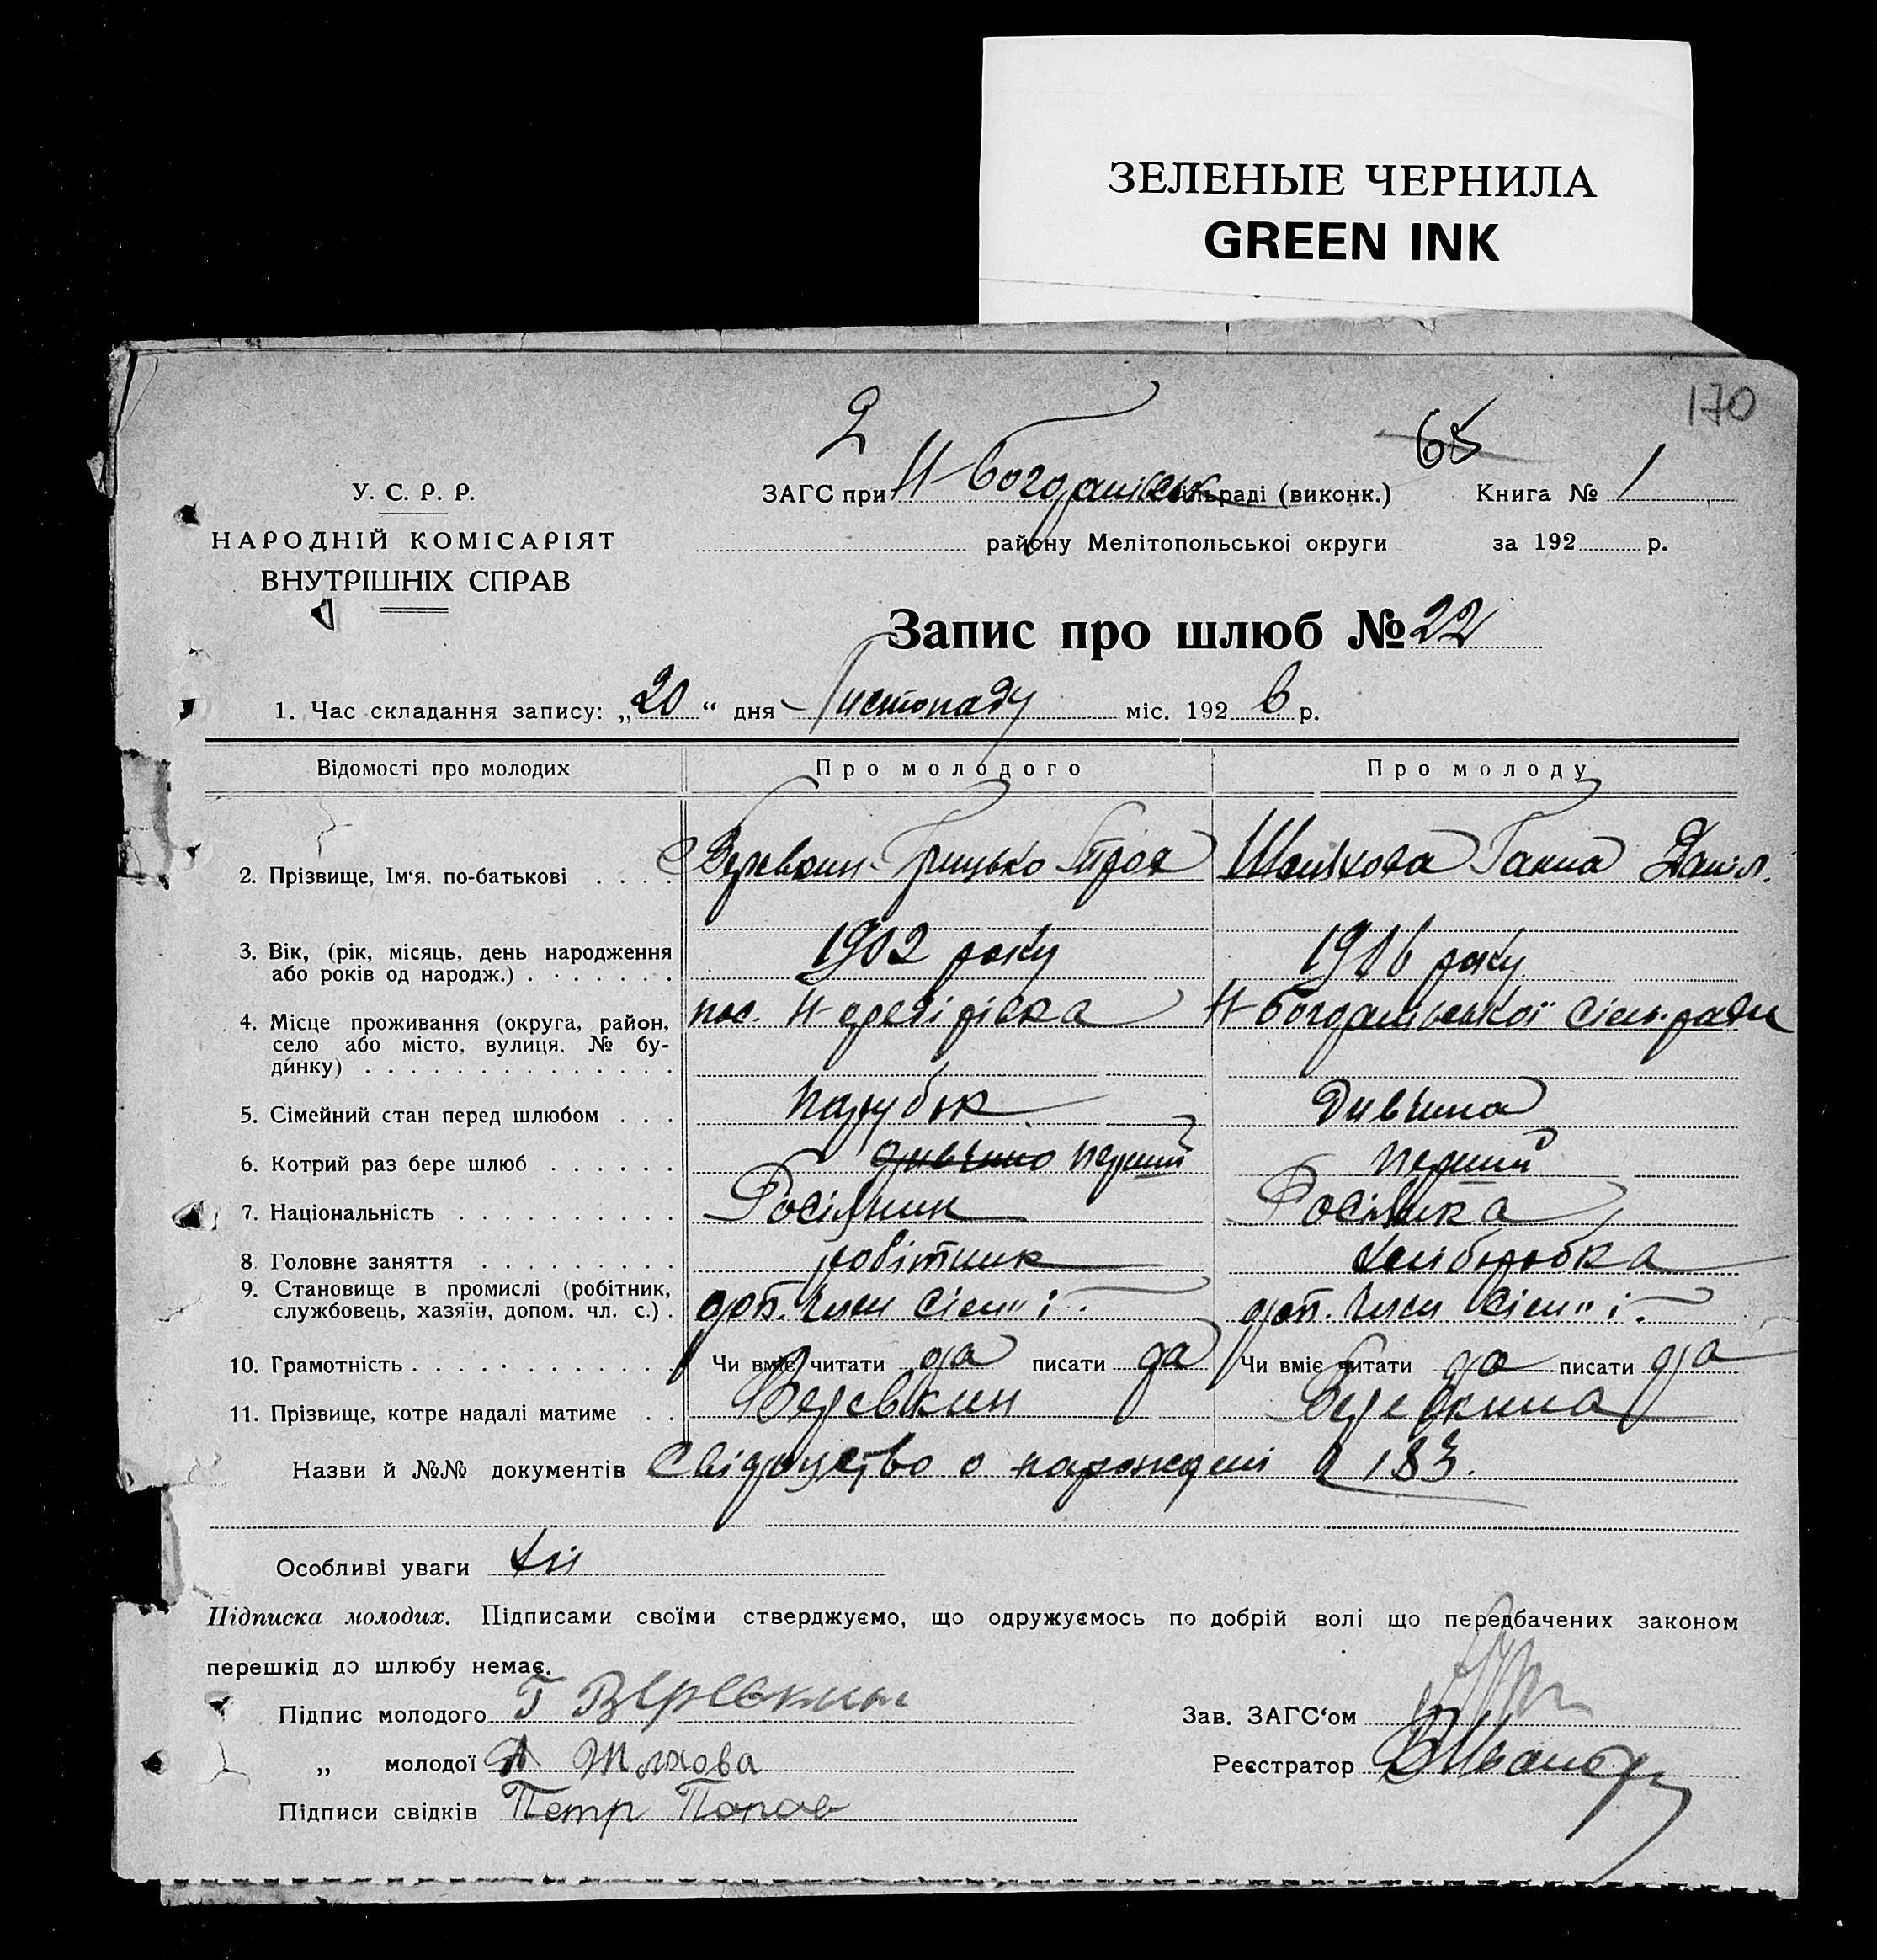 ЗЕЛЕНЫЕ ЧЕРНИЛА
GREEN INK
170
2
65
У. С. Р. Р.
НАРОДНІЙ КОМІСАРІЯТ
ВНУТРІШНІХ СПРАВ
ЗАГС при Н-Богданівськ сільраді (виконк.) Книга № 1
району Мелітопольської округи за 192 р.
Запис про шлюб № 22
1. Час складання запису: „20“ дня Листопаду міс. 1926 р.
Відомості про молодих Про молодого Про молоду
2. Прізвище, Ім‘я. по-батькові Веревкин Грицько Ганна Даніл.
3. Вік, (рік, місяць, день народження
або років од народж.) 1902 року 1906 року
4. Місце проживання (округа, район,
село або місто, вулиця. № бу-
динку) пос. Н- Н-Богданівської сіль.ради
5. Сімейний стан перед шлюбом парубок Дивчина
6. Котрий раз бере шлюб дивчино перший перший
7. Національність Росіянин Росіянка
8. Головне заняття робітник хліборобка
9. Становище в промислі (робітник,
службовець, хазяїн, допом. чл. с.) доп. член сім"ї доп. член сім"ї
10. Грамотність Чи вміє читати да писати да Чи вміє читати да писати да
11. Прізвище, котре надалі матиме Веревкин Веревкина
Назви й №№ документів Свідоцство о народжені 183.
Особливі уваги
Підписка молодих. Підписами своїми стверджуємо, що одружуємось по добрій волі що передбачених законом
перешкід до шлюбу немає.
Підпис молодого Г Веревкин Зав. ЗАГС‘ом
„ молодої А Шляхова Реєстратор
Підписи свідків Петр Попов